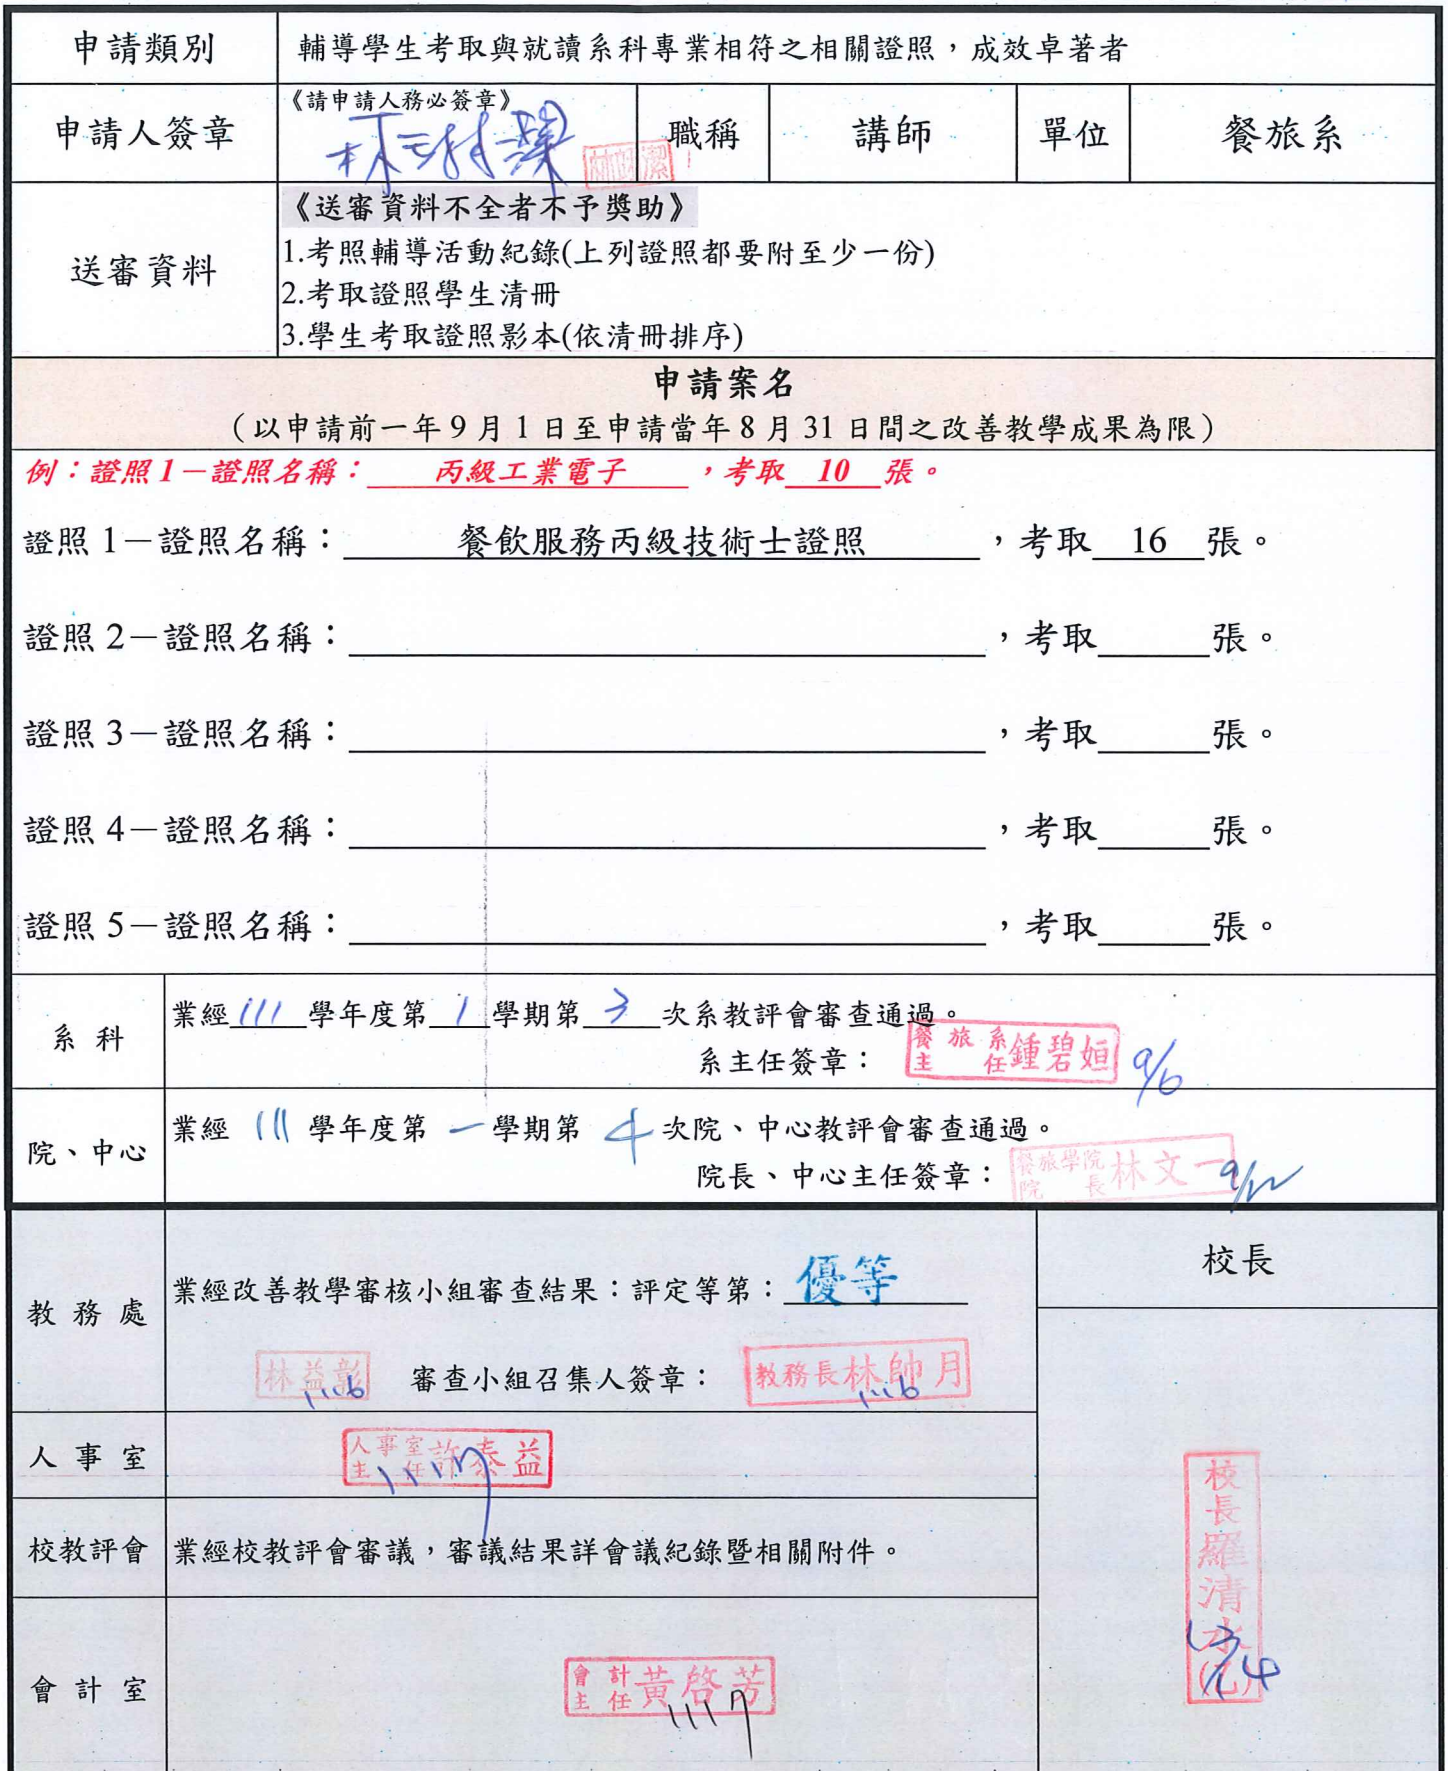 申請類別 輔導學生考取與就讀系科專業相符之相關證照，成效卓著者
申請人簽章 《請申請人務必簽章》 職稱 講師 單位 餐旅系
送審資料
《送審資料不全者不予獎助》
1.考照輔導活動紀錄(上列證照都要附至少一份)
2.考取證照學生清冊
3.學生考取證照影本(依清冊排序)
申請案名
（以申請前一年9月1日至申請當年8月31日間之改善教學成果為限）
例：證照1－證照名稱：丙級工業電子，考取 10 張。
證照 1－證照名稱：餐飲服務丙級技術士證照，考取 16 張。
證照 2－證照名稱：，考取 張。
證照 3－證照名稱：，考取 張。
證照 4－證照名稱：，考取 張。
證照 5－證照名稱：，考取 張。
系科 業經 111 學年度第 1 學期第 3 次系教評會審查通過。
系主任簽章： 餐旅系主任 鍾碧姮 9/6
院、中心 業經 111 學年度第 一 學期第 4 次院、中心教評會審查通過。
院長、中心主任簽章： 餐旅學院院長 林文一 9/12
校長
教務處 業經改善教學審核小組審查結果：評定等第：優等
林益彰 審查小組召集人簽章： 教務長林帥月
人事室 人事室主任 許泰益
校教評會 業經校教評會審議，審議結果詳會議紀錄暨相關附件。
校長羅清水(乙)
會計室 會計主任 黃啓芳